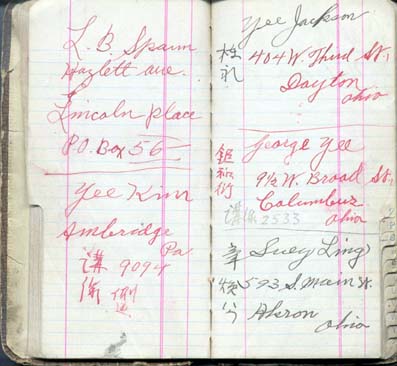 L. B. Spahn
Hazlett ave.
Lincoln Place
P.O. Box 56
Yee Kim
Ambridge
Pa
講 9094
Yee Jackson
404 W. Third St.,
Dayton
Ohio
George Yee
9½ W. Broad St,
Columbus
2533 Ohio
Suey Ling
593 S. Main St.
Akron
Ohio